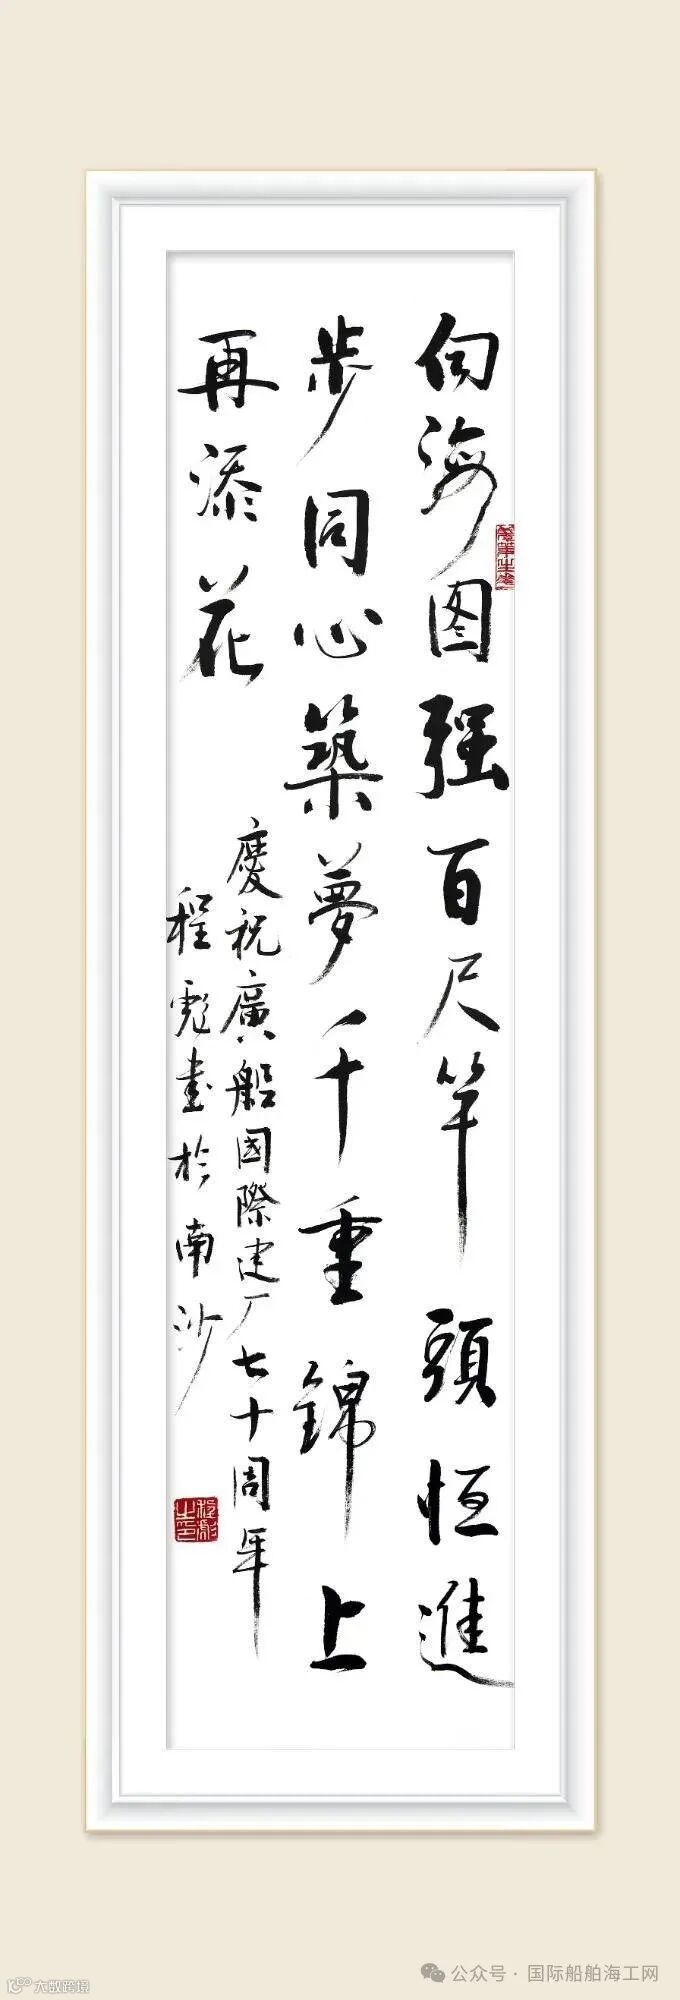 向海图强百尺竿頭恒進
步同心築夢千重錦上
再添花
慶祝廣船國際建厂七十周年
程彪書於南沙
程彪之印
公众号 · 国际船舶海工网
大数跨境